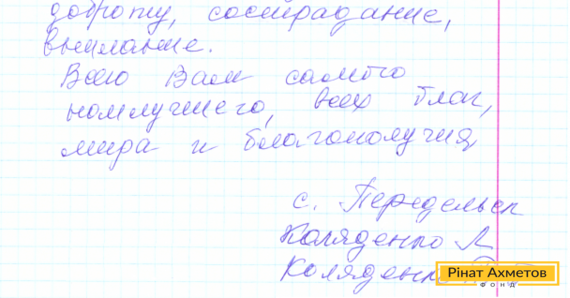 доброту, сострадание,
внимание.
Всего Вам самого
наилучшего, всех благ,
мира и благополучия
с. Передельск
Коляденко Л
Коляденко
Рінат Ахметов
ФОНД